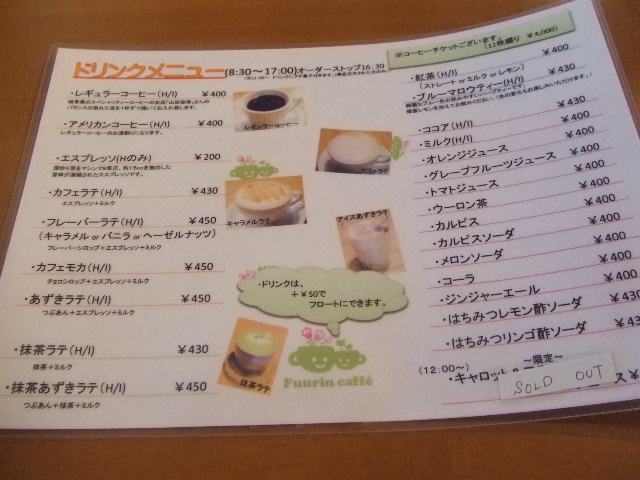 ドリンクメニュー(8:30〜17:00)オーダーストップ16:30
・レギュラーコーヒー(H/I) ¥400
岐阜県のスペシャリティーコーヒーのお店「山田珈琲」さんの
・アメリカンコーヒー(H/I) ¥400
レギュラーコーヒーのお湯割りになります。
・エスプレッソ(Hのみ) ¥200
旨味が凝縮されたエスプレッソです。
・カフェラテ(H/I) ¥430
エスプレッソ+ミルク
・フレーバーラテ(H/I) ¥450
(キャラメル or バニラ or ヘーゼルナッツ)
フレーバーシロップ+エスプレッソ+ミルク
・カフェモカ(H/I) ¥450
チョコシロップ+エスプレッソ+ミルク
・あずきラテ(H/I) ¥450
つぶあん+エスプレッソ+ミルク
・抹茶ラテ(H/I) ¥430
抹茶+ミルク
・抹茶あずきラテ(H/I) ¥450
つぶあん+抹茶+ミルク
レギュラーコーヒー
カフェラテ
キャラメルラテ
アイスあずきラテ
・ドリンクは、
+¥50で
フロートにできます。
抹茶ラテ
Fuurin caffé
※コーヒーチケットございます。
(11枚綴り ¥4,000)
・紅茶(H/I) ¥400
(ストレート or ミルク or レモン)
・ブルーマロウティー(H/I) ¥430
・ココア(H/I) ¥430
・ミルク(H/I) ¥400
・オレンジジュース ¥400
・グレープフルーツジュース ¥400
・トマトジュース ¥400
・ウーロン茶 ¥400
・カルピス ¥400
・カルピスソーダ ¥400
・メロンソーダ ¥400
・コーラ ¥400
・ジンジャーエール ¥400
・はちみつレモン酢ソーダ
・はちみつリンゴ酢ソーダ
(12:00〜) 〜限定〜
・キャロット
SOLD OUT